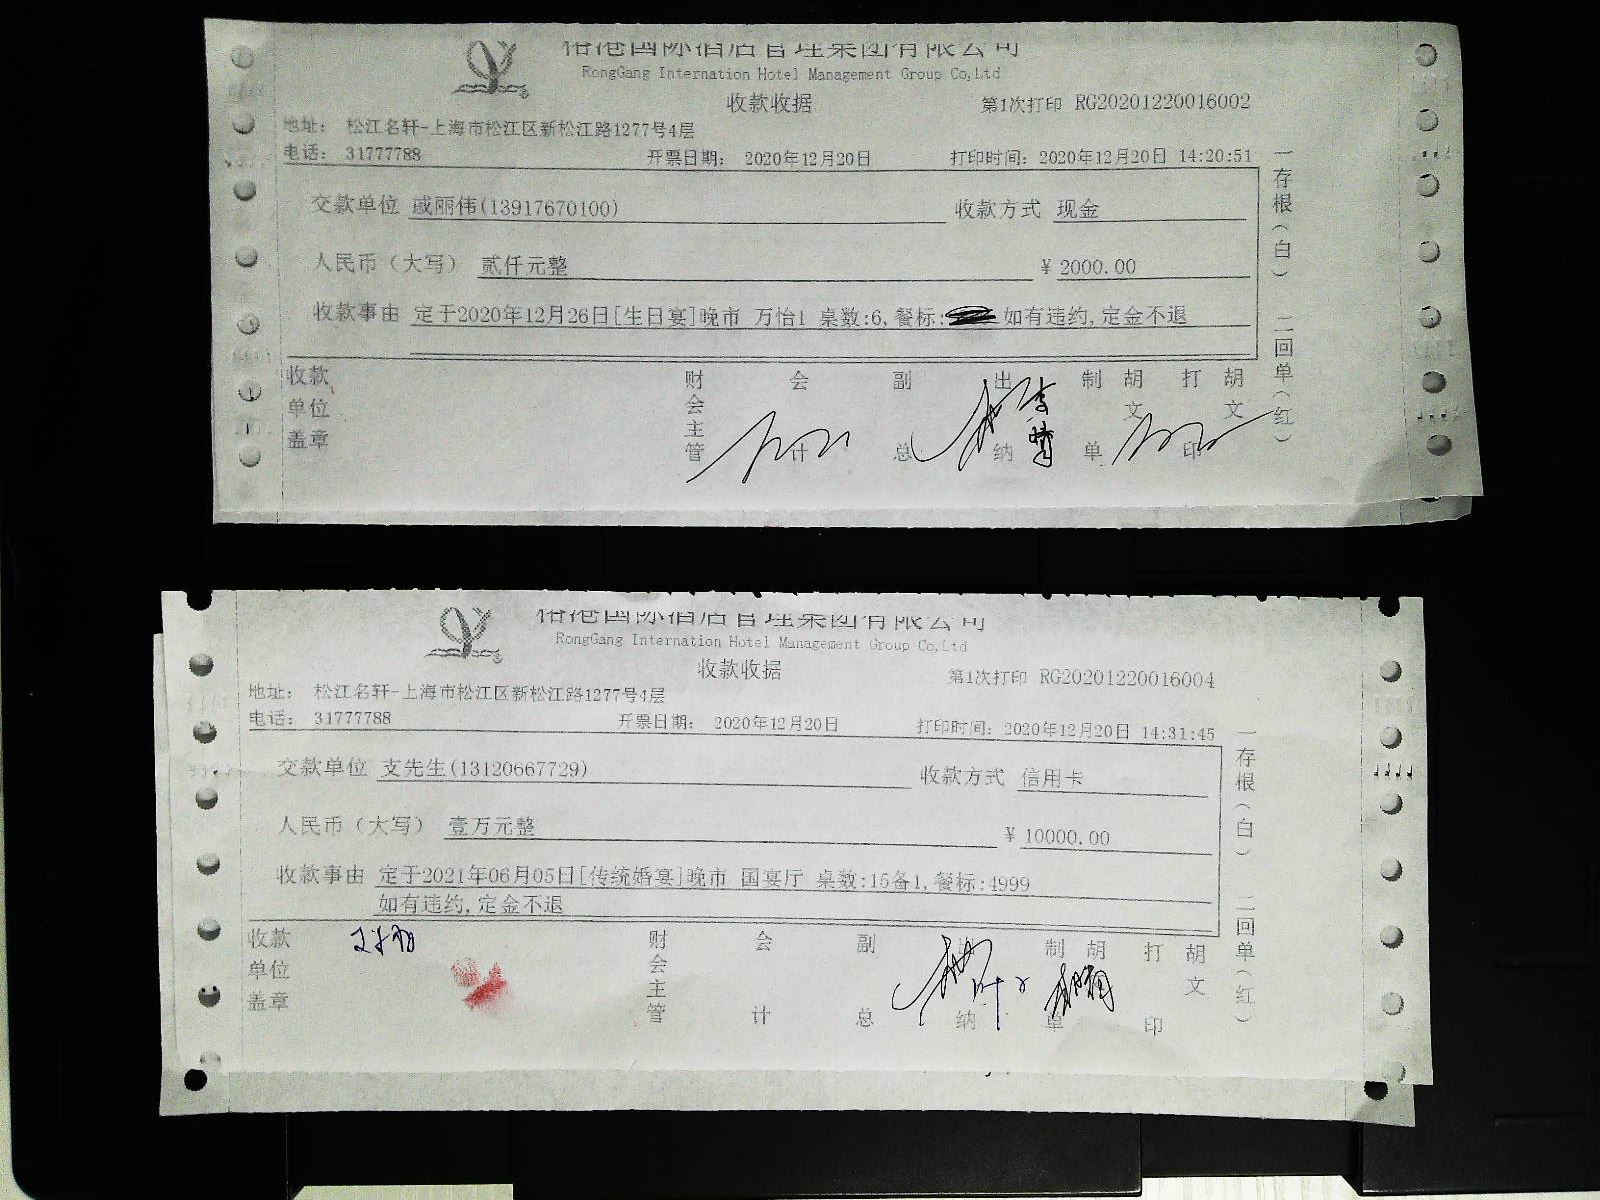 榕港国际酒店管理集团有限公司
RongGang Internation Hotel Management Group Co,Ltd
收款收据 第1次打印 RG20201220016002
地址： 松江名轩-上海市松江区新松江路1277号4层
电话： 31777788 开票日期： 2020年12月20日 打印时间：2020年12月20日 14:20:51
交款单位 戚丽伟(13917670100) 收款方式 现金
人民币（大写） 贰仟元整 ¥ 2000.00
收款事由 定于2020年12月26日[生日宴]晚市 万怡1 桌数:6,餐标: 如有违约,定金不退
收款单位盖章 财会主管 会计 副总 出纳 李晴 制单 胡文 打印 胡文
一存根（白） 二回单（红）
榕港国际酒店管理集团有限公司
RongGang Internation Hotel Management Group Co,Ltd
收款收据 第1次打印 RG20201220016004
地址： 松江名轩-上海市松江区新松江路1277号4层
电话： 31777788 开票日期： 2020年12月20日 打印时间：2020年12月20日 14:31:45
交款单位 支先生(13120667729) 收款方式 信用卡
人民币（大写） 壹万元整 ¥ 10000.00
收款事由 定于2021年06月05日[传统婚宴]晚市 国宴厅 桌数:15备1,餐标:4999
如有违约,定金不退
收款单位盖章 财会主管 会计 副总 出纳 制单 胡 打印 胡文
一存根（白） 二回单（红）